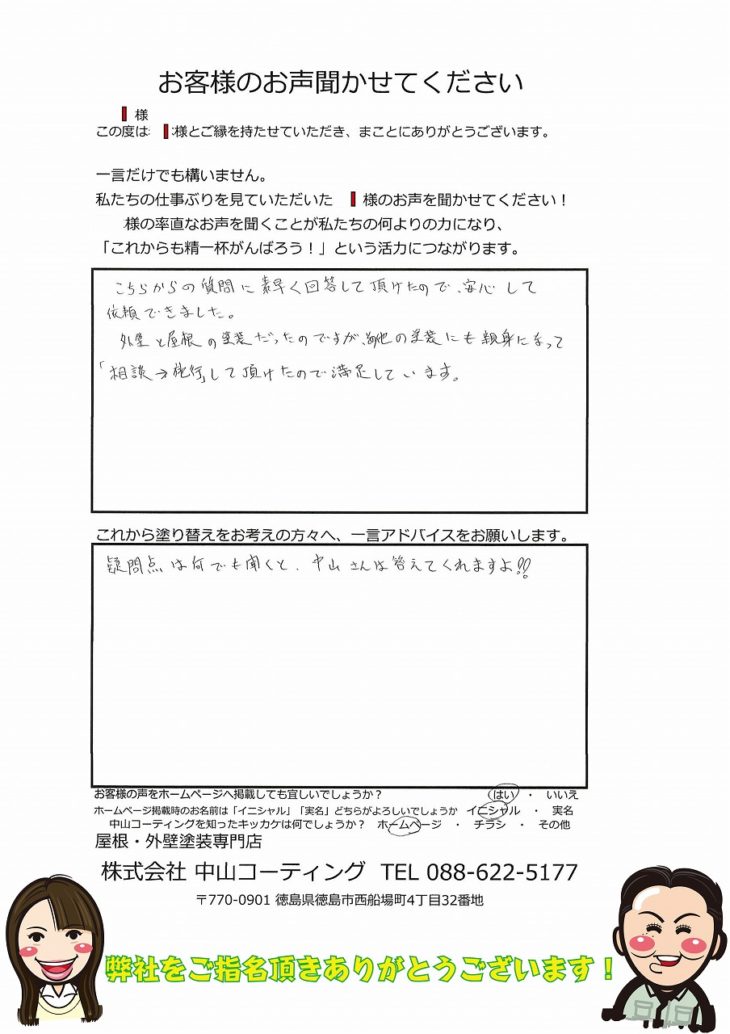 お客様のお声聞かせてください
様
この度は 様とご縁を持たせていただき、まことにありがとうございます。
一言だけでも構いません。
私たちの仕事ぶりを見ていただいた 様のお声を聞かせてください！
様の率直なお声を聞くことが私たちの何よりの力になり、
「これからも精一杯がんばろう！」という活力につながります。
こちらからの質問に素早く回答して頂けたので、安心して
依頼できました。
外壁と屋根の塗装だったのですが、他の塗装にも親身になって
「相談→施行」して頂けたので満足しています。
これから塗り替えをお考えの方々へ、一言アドバイスをお願いします。
疑問点は何でも聞くと、中山さんは答えてくれますよ!!
お客様の声をホームページへ掲載しても宜しいでしょうか？ はい ・ いいえ
ホームページ掲載時のお名前は「イニシャル」「実名」どちらがよろしいでしょうか イニシャル ・ 実名
中山コーティングを知ったキッカケは何でしょうか？ ホームページ ・ チラシ ・ その他
屋根・外壁塗装専門店
株式会社 中山コーティング TEL 088-622-5177
〒770-0901 徳島県徳島市西船場町4丁目32番地
弊社をご指名頂きありがとうございます！